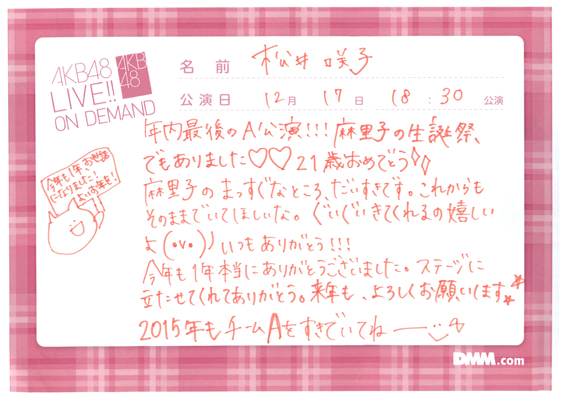 AKB48
LIVE!!
ON DEMAND
AKB
48
名前 松井咲子
公演日 12月 17日 18:30 公演
年内最後のA公演!!!麻里子の生誕祭、
でもありました♡♡21歳おめでとう
麻里子のまっすぐなところ、だいすきです。これからも
そのままでいてほしいな。ぐいぐいきてくれるの嬉しい
よ(・v・)ノいつもありがとう!!!
今年も1年本当にありがとうございました。ステージに
立たせてくれてありがとう。来年も、よろしくお願いします
2015年もチームAをすきでいてねー
今年も1年、お世話
になりました!
よいお年を!
DMM.com